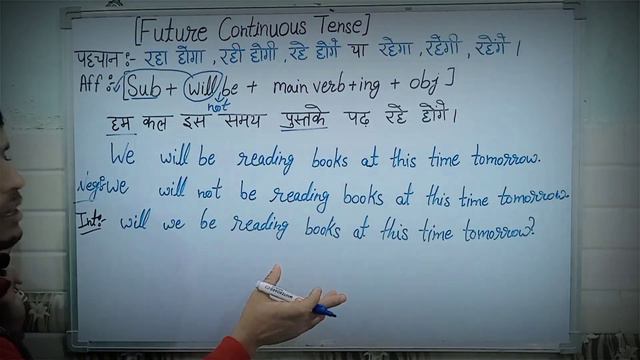 [Future Continuous Tense]
पहचान :- रहा होगा, रही होगी, रहे होंगे या रहेगा, रहेगी, रहेंगे।
Aff :- [Sub + will be + main verb+ing + obj]
not
हम कल इस समय पुस्तके पढ़ रहे होंगे।
We will be reading books at this time tomorrow.
Neg: we will not be reading books at this time tomorrow.
Int: will we be reading books at this time tomorrow?